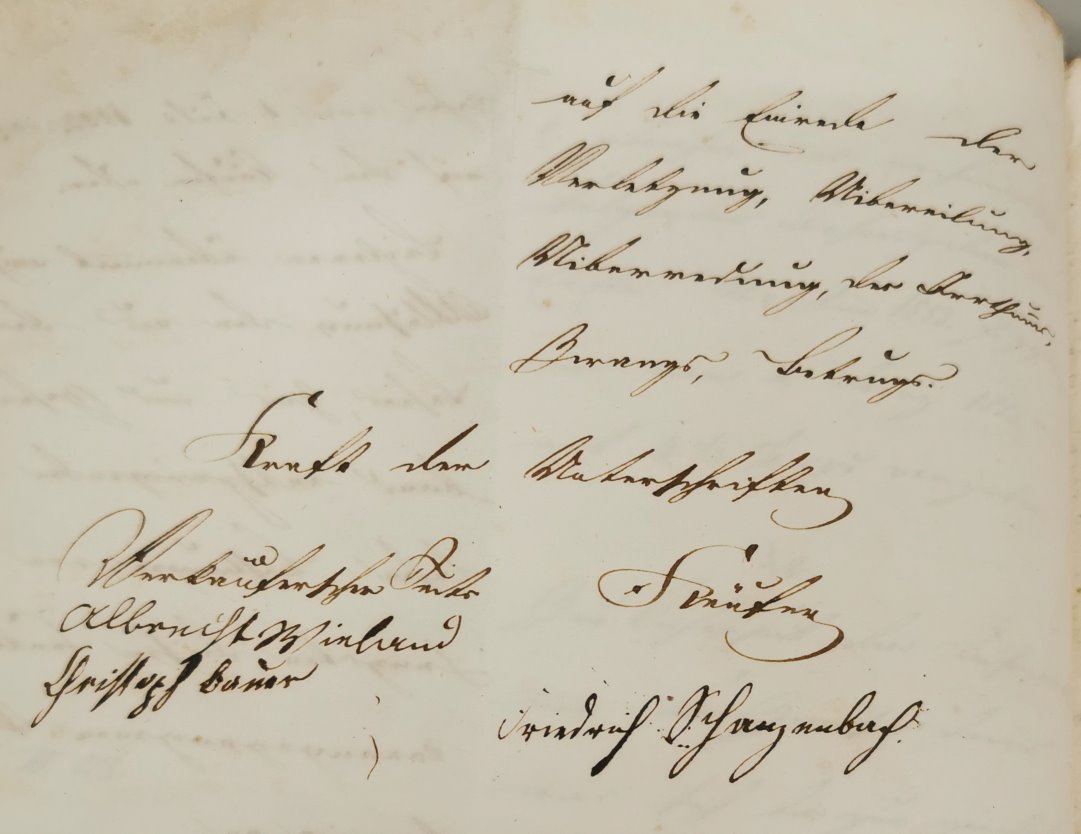 auf die Einrede der
Verletzung, Uibereilung,
Uiberredung, des Irrthums,
Zwangs, Betrugs.
Kraft der Unterschriften
Verkäuferscher Seits
Albrecht Wieland
Christoph Bauer
Käufer
Friedrich Schanzenbach